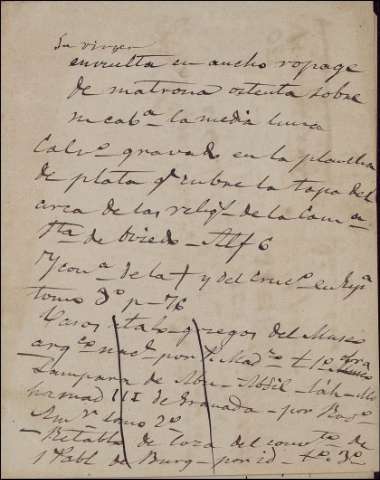 La virgen
envuelta en ancho ropage
de matrona ostenta sobre
su cabª la media luna
Calvº gravado en la plancha
de plata q cubre la tapa del
arca de las reliqs de la Cam
Sta de Oviedo - Alf 6
Yconª de la † y del Crucº en Espª
tomo 3º p - 76
Vasos italo-griegos del Museo
arqcº nacl por
Lampara de Abu - Abdil - lah - Mo
hamad III de Granada - por Rodº
Amr tomo 2º
Retablo de loza del convto de
Sn Pabl de Burg - por id - tº 3º